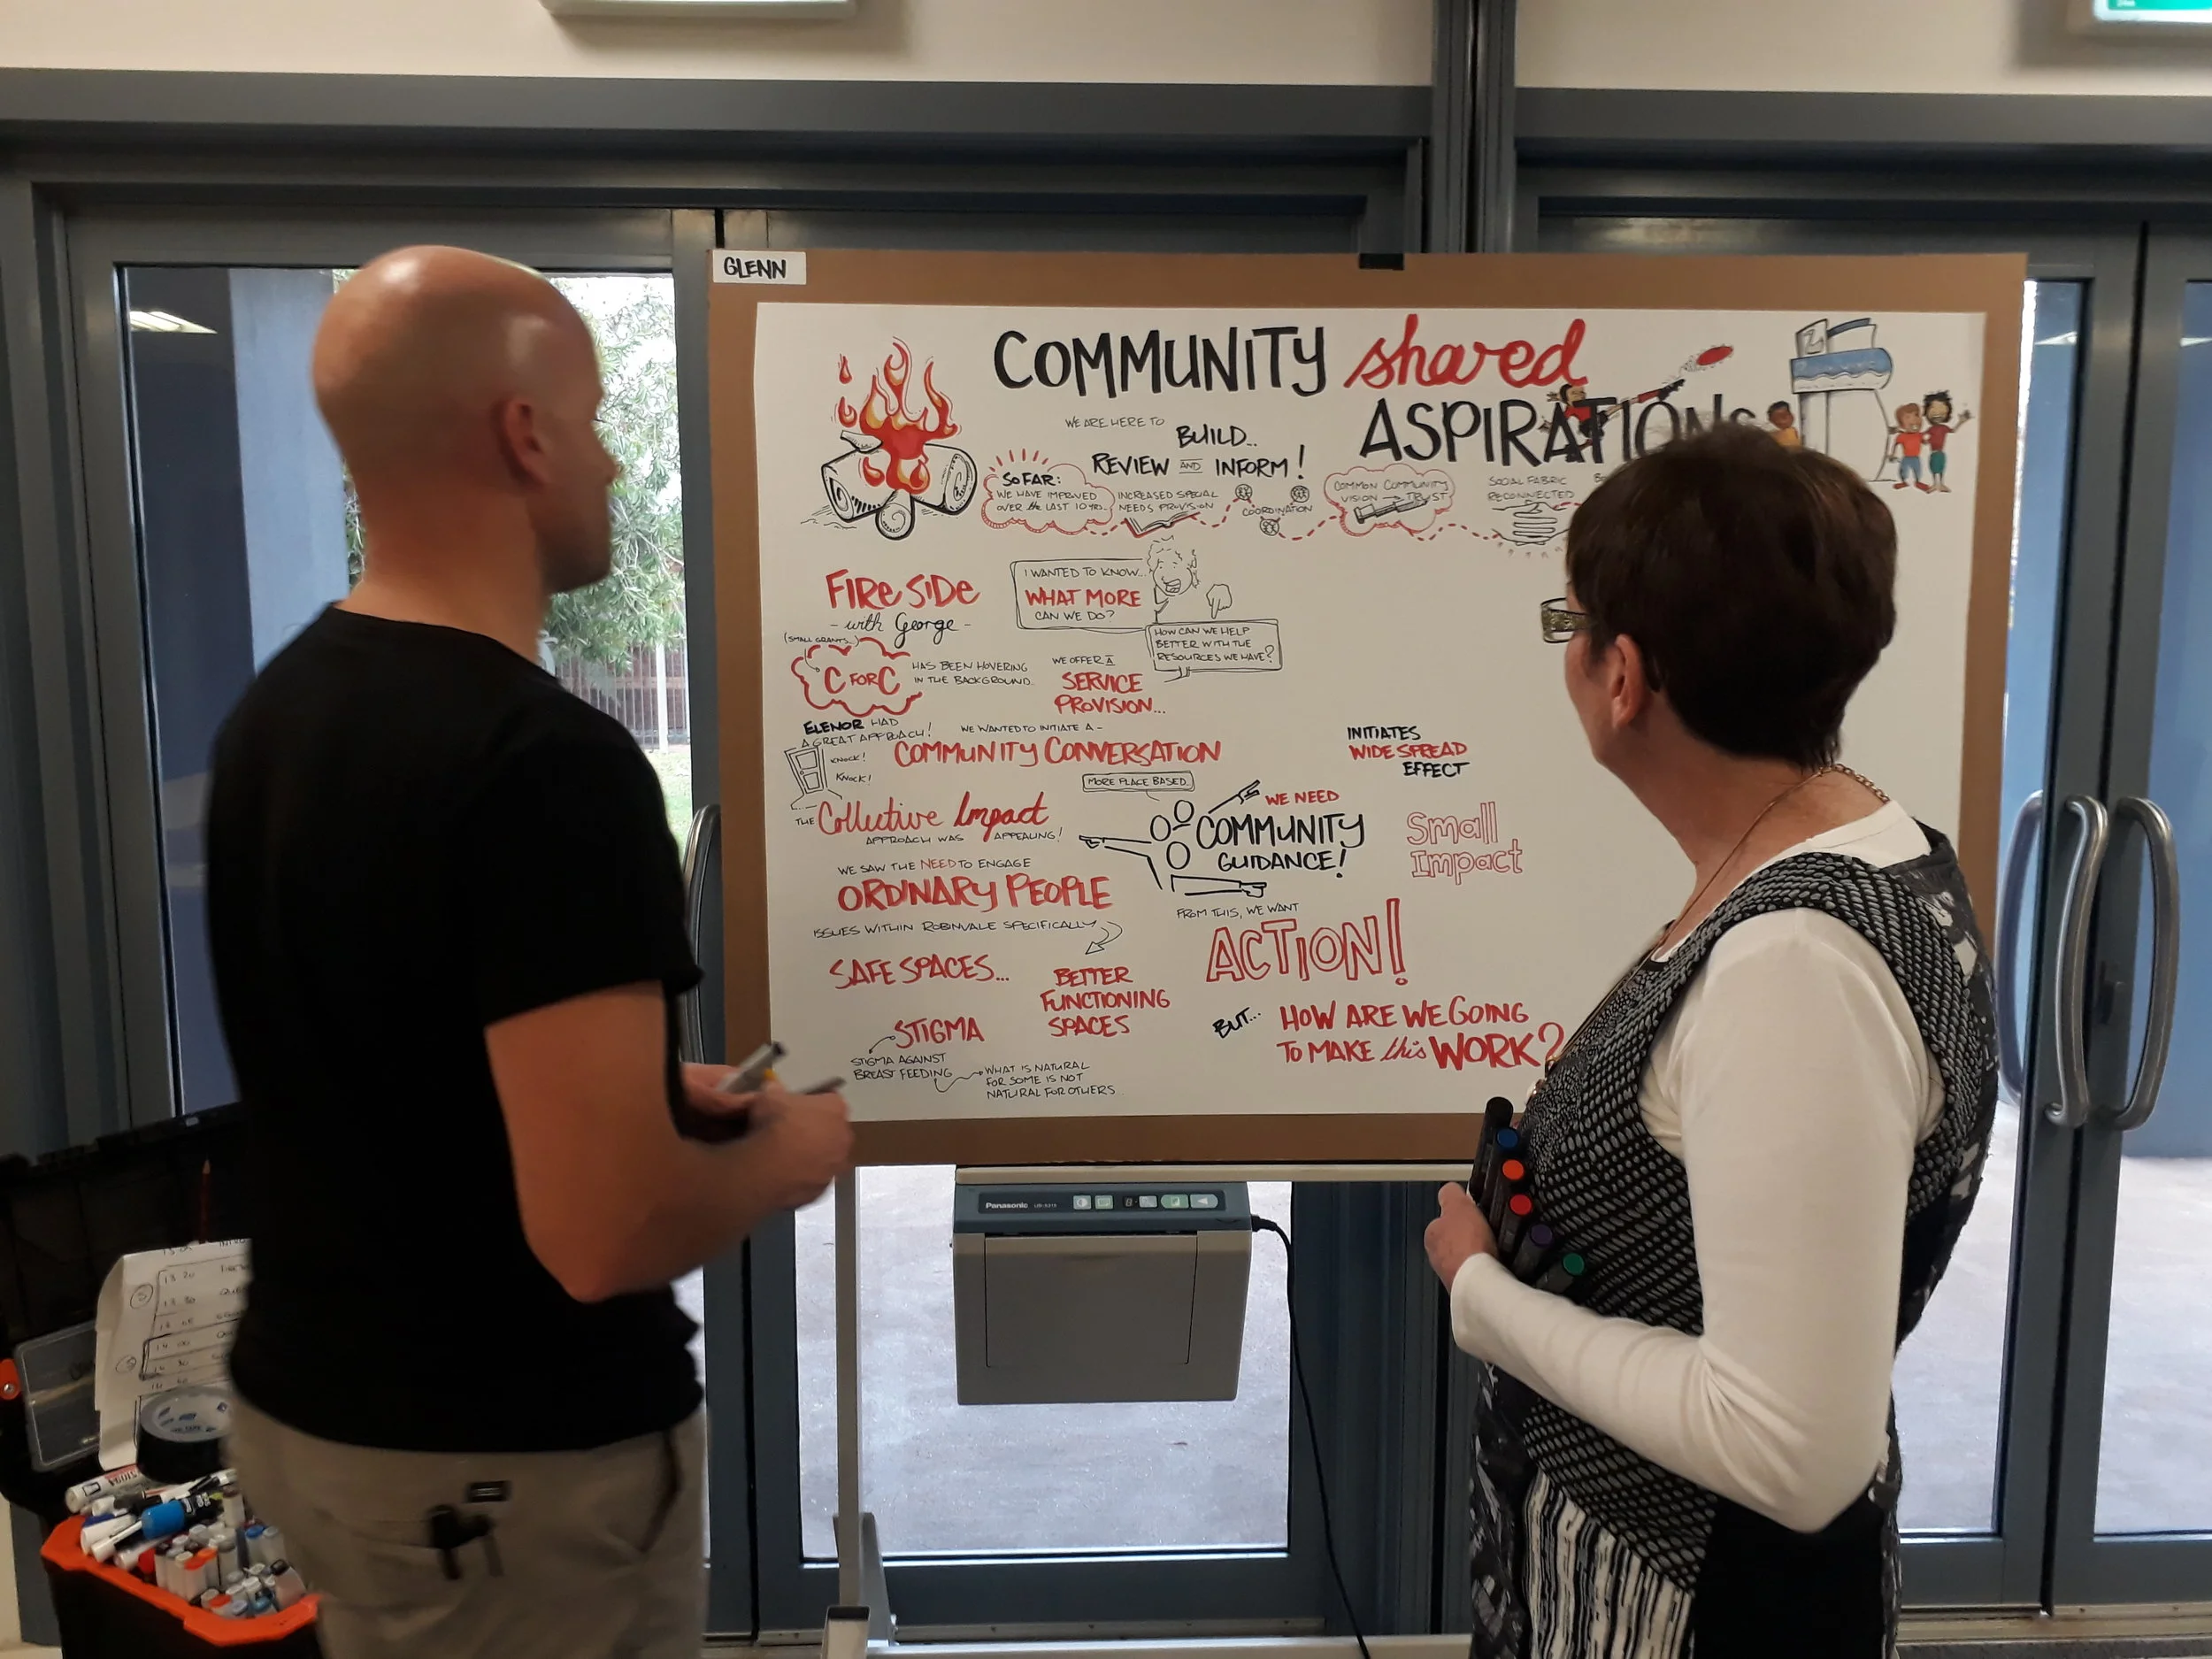 GLENN
COMMUNITY shared
ASPIRATIONS
WE ARE HERE TO
BUILD..
REVIEW AND INFORM!
SO FAR:
WE HAVE IMPROVED
OVER the LAST 10 YRS.
INCREASED SPECIAL
NEEDS PROVISION
COORDINATION
COMMON COMMUNITY
VISION → TRUST
SOCIAL FABRIC
RECONNECTED
FIRESIDE
- with George -
I WANTED TO KNOW...
WHAT MORE
CAN WE DO?
HOW CAN WE HELP
BETTER WITH THE
RESOURCES WE HAVE?
(SMALL GRANTS..)
C FOR C
HAS BEEN HOVERING
IN THE BACKGROUND.
WE OFFER A
SERVICE
PROVISION...
ELENOR HAD
A GREAT APPROACH!
KNOCK!
KNOCK!
WE WANTED TO INITIATE A -
COMMUNITY CONVERSATION
MORE PLACE BASED
THE Collective Impact
APPROACH WAS APPEALING!
WE NEED
COMMUNITY
GUIDANCE!
INITIATES
WIDESPREAD
EFFECT
Small
Impact
WE SAW THE NEED TO ENGAGE
ORDINARY PEOPLE
ISSUES WITHIN ROBINVALE SPECIFICALLY
SAFE SPACES...
BETTER
FUNCTIONING
SPACES
FROM THIS, WE WANT
ACTION!
BUT...
HOW ARE WE GOING
TO MAKE this WORK?
STIGMA
STIGMA AGAINST
BREAST FEEDING
WHAT IS NATURAL
FOR SOME IS NOT
NATURAL FOR OTHERS...
Panasonic